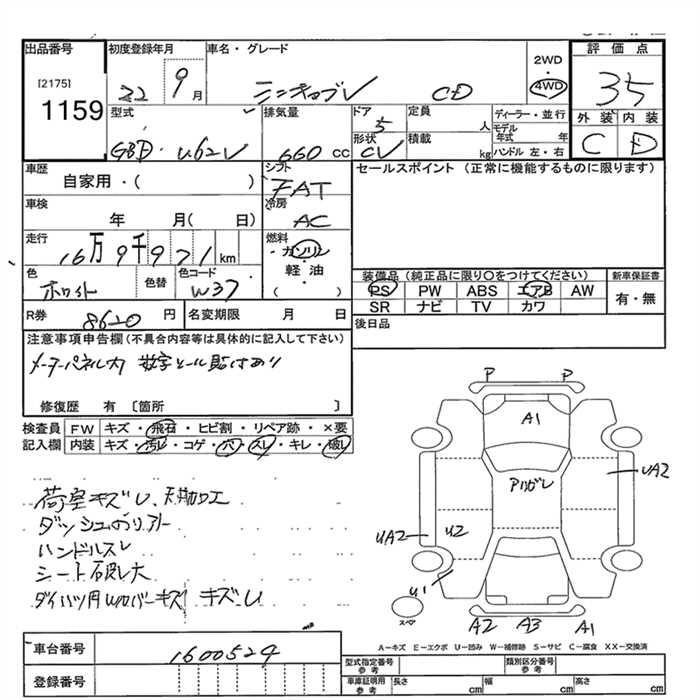 出品番号
[2175]
1159
初度登録年月
22 9月
車名・グレード
ミニキャブV CD
2WD
・
4WD
評価点
35
外装 内装
C D
型式
GBD-U62V
排気量
660 cc
ドア
5
形状
CV
定員
人
積載
kg
ディーラー・並行
モデル年式 年
ハンドル 左・右
車歴
自家用・( )
シフト
FAT
セールスポイント (正常に機能するものに限ります)
車検
年 月( 日)
冷房
AC
走行
16万9千921km
燃料
ガソリン
・
軽油
( )
色
ホワイト
色替
色コード
W37
装備品(純正品に限り○をつけてください)
PS PW ABS エアB AW
SR ナビ TV カワ
新車保証書
有・無
R券
8620円
名変期限 月 日
後日品
注意事項申告欄(不具合内容等は具体的に記入して下さい)
メーターパネル内 数字シール貼はあり
修復歴 有 〔箇所 〕
検査員記入欄
FW キズ・飛石・ヒビ割・リペア跡・×要
内装 キズ・汚レ・コゲ・穴・スレ・キレ・破レ
荷室キズし、天井加工
ハンドルスレ
シート破レ大
P P
A1
Aハガレ
UA2
UA2
U2
U1
スペア
A2 A3 A1
A-キズ E-エクボ U-凹み W-補修跡 S-サビ C-腐食 XX-交換済
車台番号
1600524
登録番号
型式指定番号
参考
類別区分番号
参考
車庫証明用
参考
長さ cm
幅 cm
高さ cm